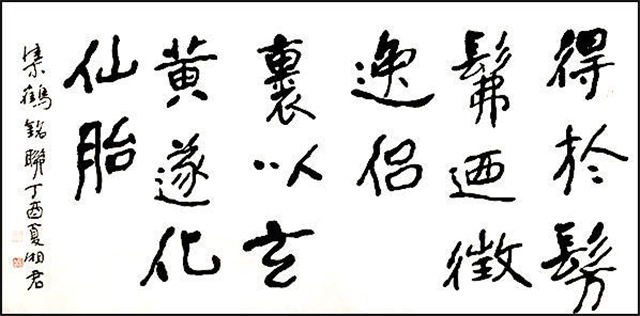 得於髣
髴迺徵
逸侣
裹以玄
黄遂化
仙胎
集鶴銘聯丁酉夏湘君